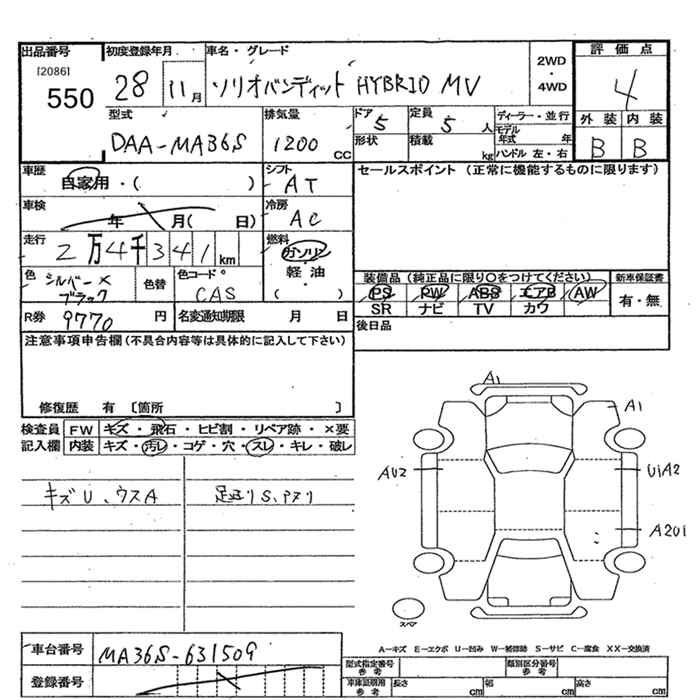 出品番号 初度登録年月 車名・グレード 2WD・4WD 評価点
[2086] 550 28 11月 ソリオバンディット HYBRID MV 4
型式 排気量 ドア 定員 ディーラー・並行 外装 内装
DAA-MA36S 1200cc 5 5人 モデル年式 年 B B
形状 積載 kg ハンドル 左・右
車歴 シフト セールスポイント (正常に機能するものに限ります)
自家用・( ) AT
車検 冷房
年 月( 日) AC
走行 燃料
2万4千341km ガソリン
色 色替 色コード 軽・油 装備品(純正品に限り○をつけてください) 新車保証書
シルバー× ブラック CAS ( ・ ) PS PW ABS エアB AW 有・無
SR ナビ TV カワ
R券 9770円 名変通知期限 月 日 後日品
注意事項申告欄(不具合内容等は具体的に記入して下さい)
修復歴 有 〔箇所 〕
検査員 FW キズ・飛石・ヒビ割・リペア跡・×要
記入欄 内装 キズ・汚レ・コゲ・穴・スレ・キレ・破レ
キズU、ウスA 足廻りS、アメリ
A1
A1
AU2 UiA2
A2U1
スペア
A-キズ E-エクボ U-凹み W-補修跡 S-サビ C-腐食 XX-交換済
車台番号 MA36S-631509
登録番号
型式指定番号 参考 類別区分番号 参考
車庫証明用 参考 長さ cm 幅 cm 高さ cm